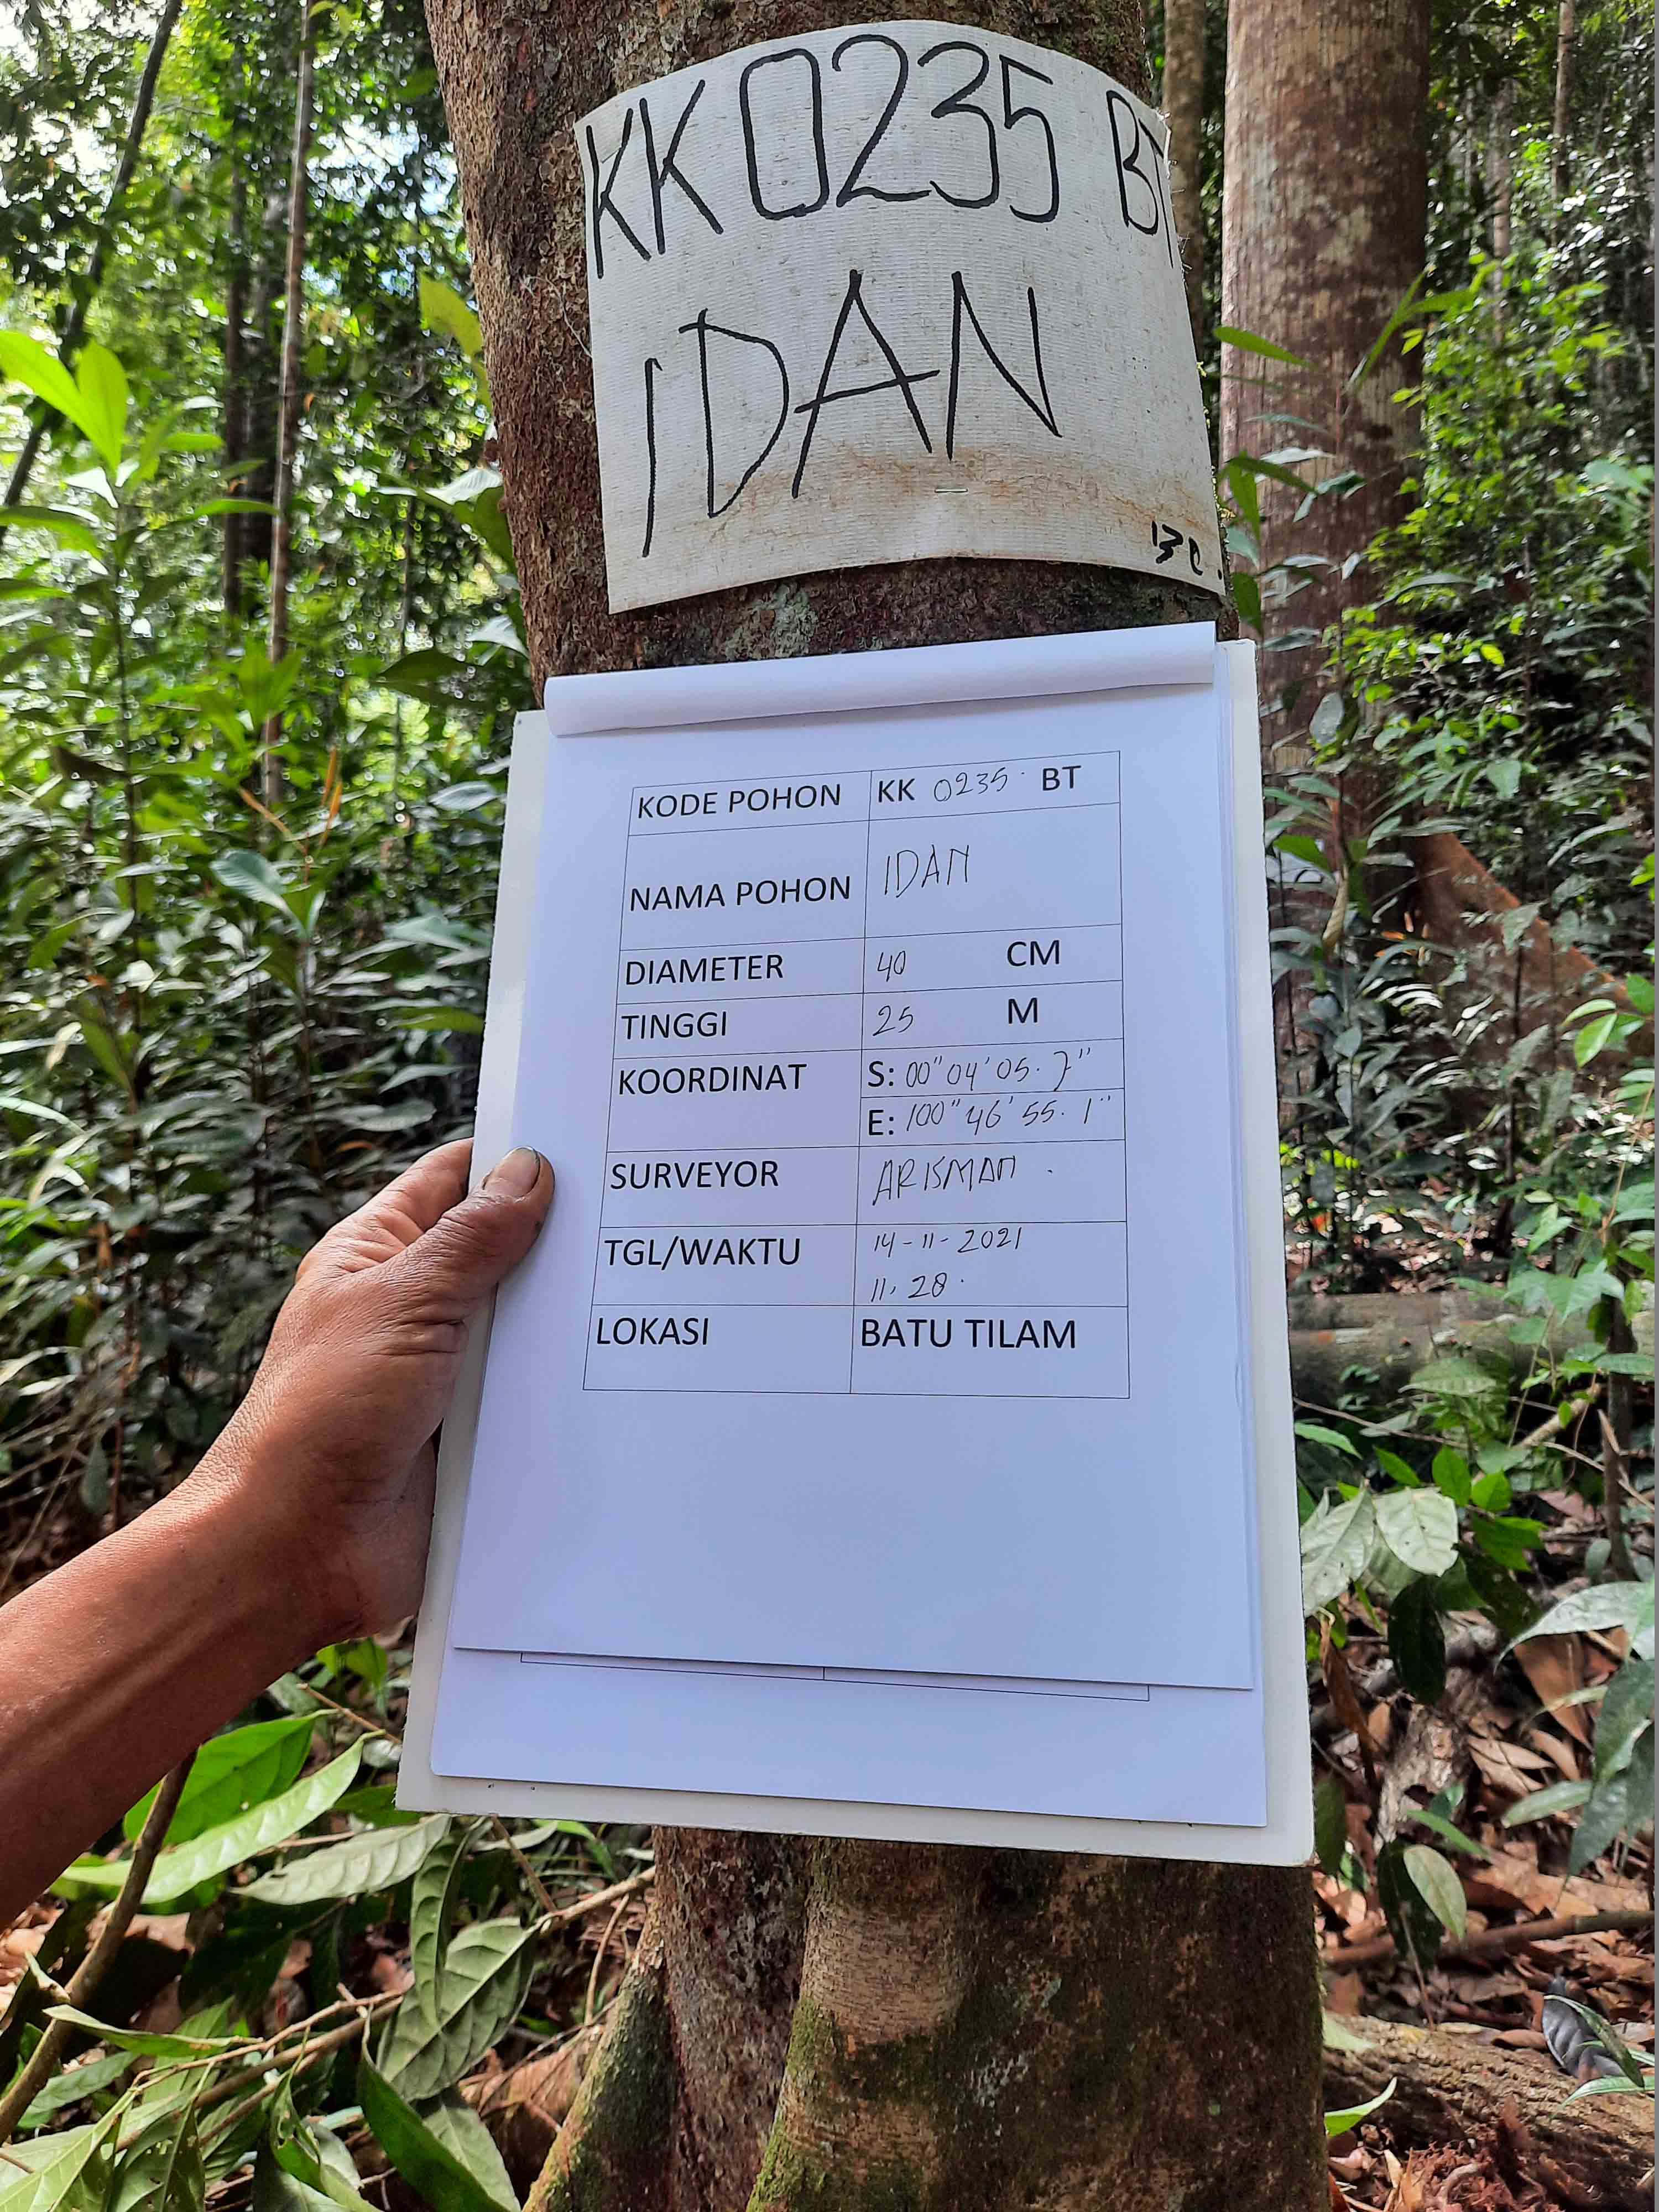 KK 0235 BT
IDAN
130.
KODE POHON KK 0235 BT
NAMA POHON IDAN
DIAMETER 40 CM
TINGGI 25 M
KOORDINAT S: 00" 04' 05.7"
E: 100" 46' 55.1"
SURVEYOR ARISMAN
TGL/WAKTU 14-11-2021
11.28
LOKASI BATU TILAM